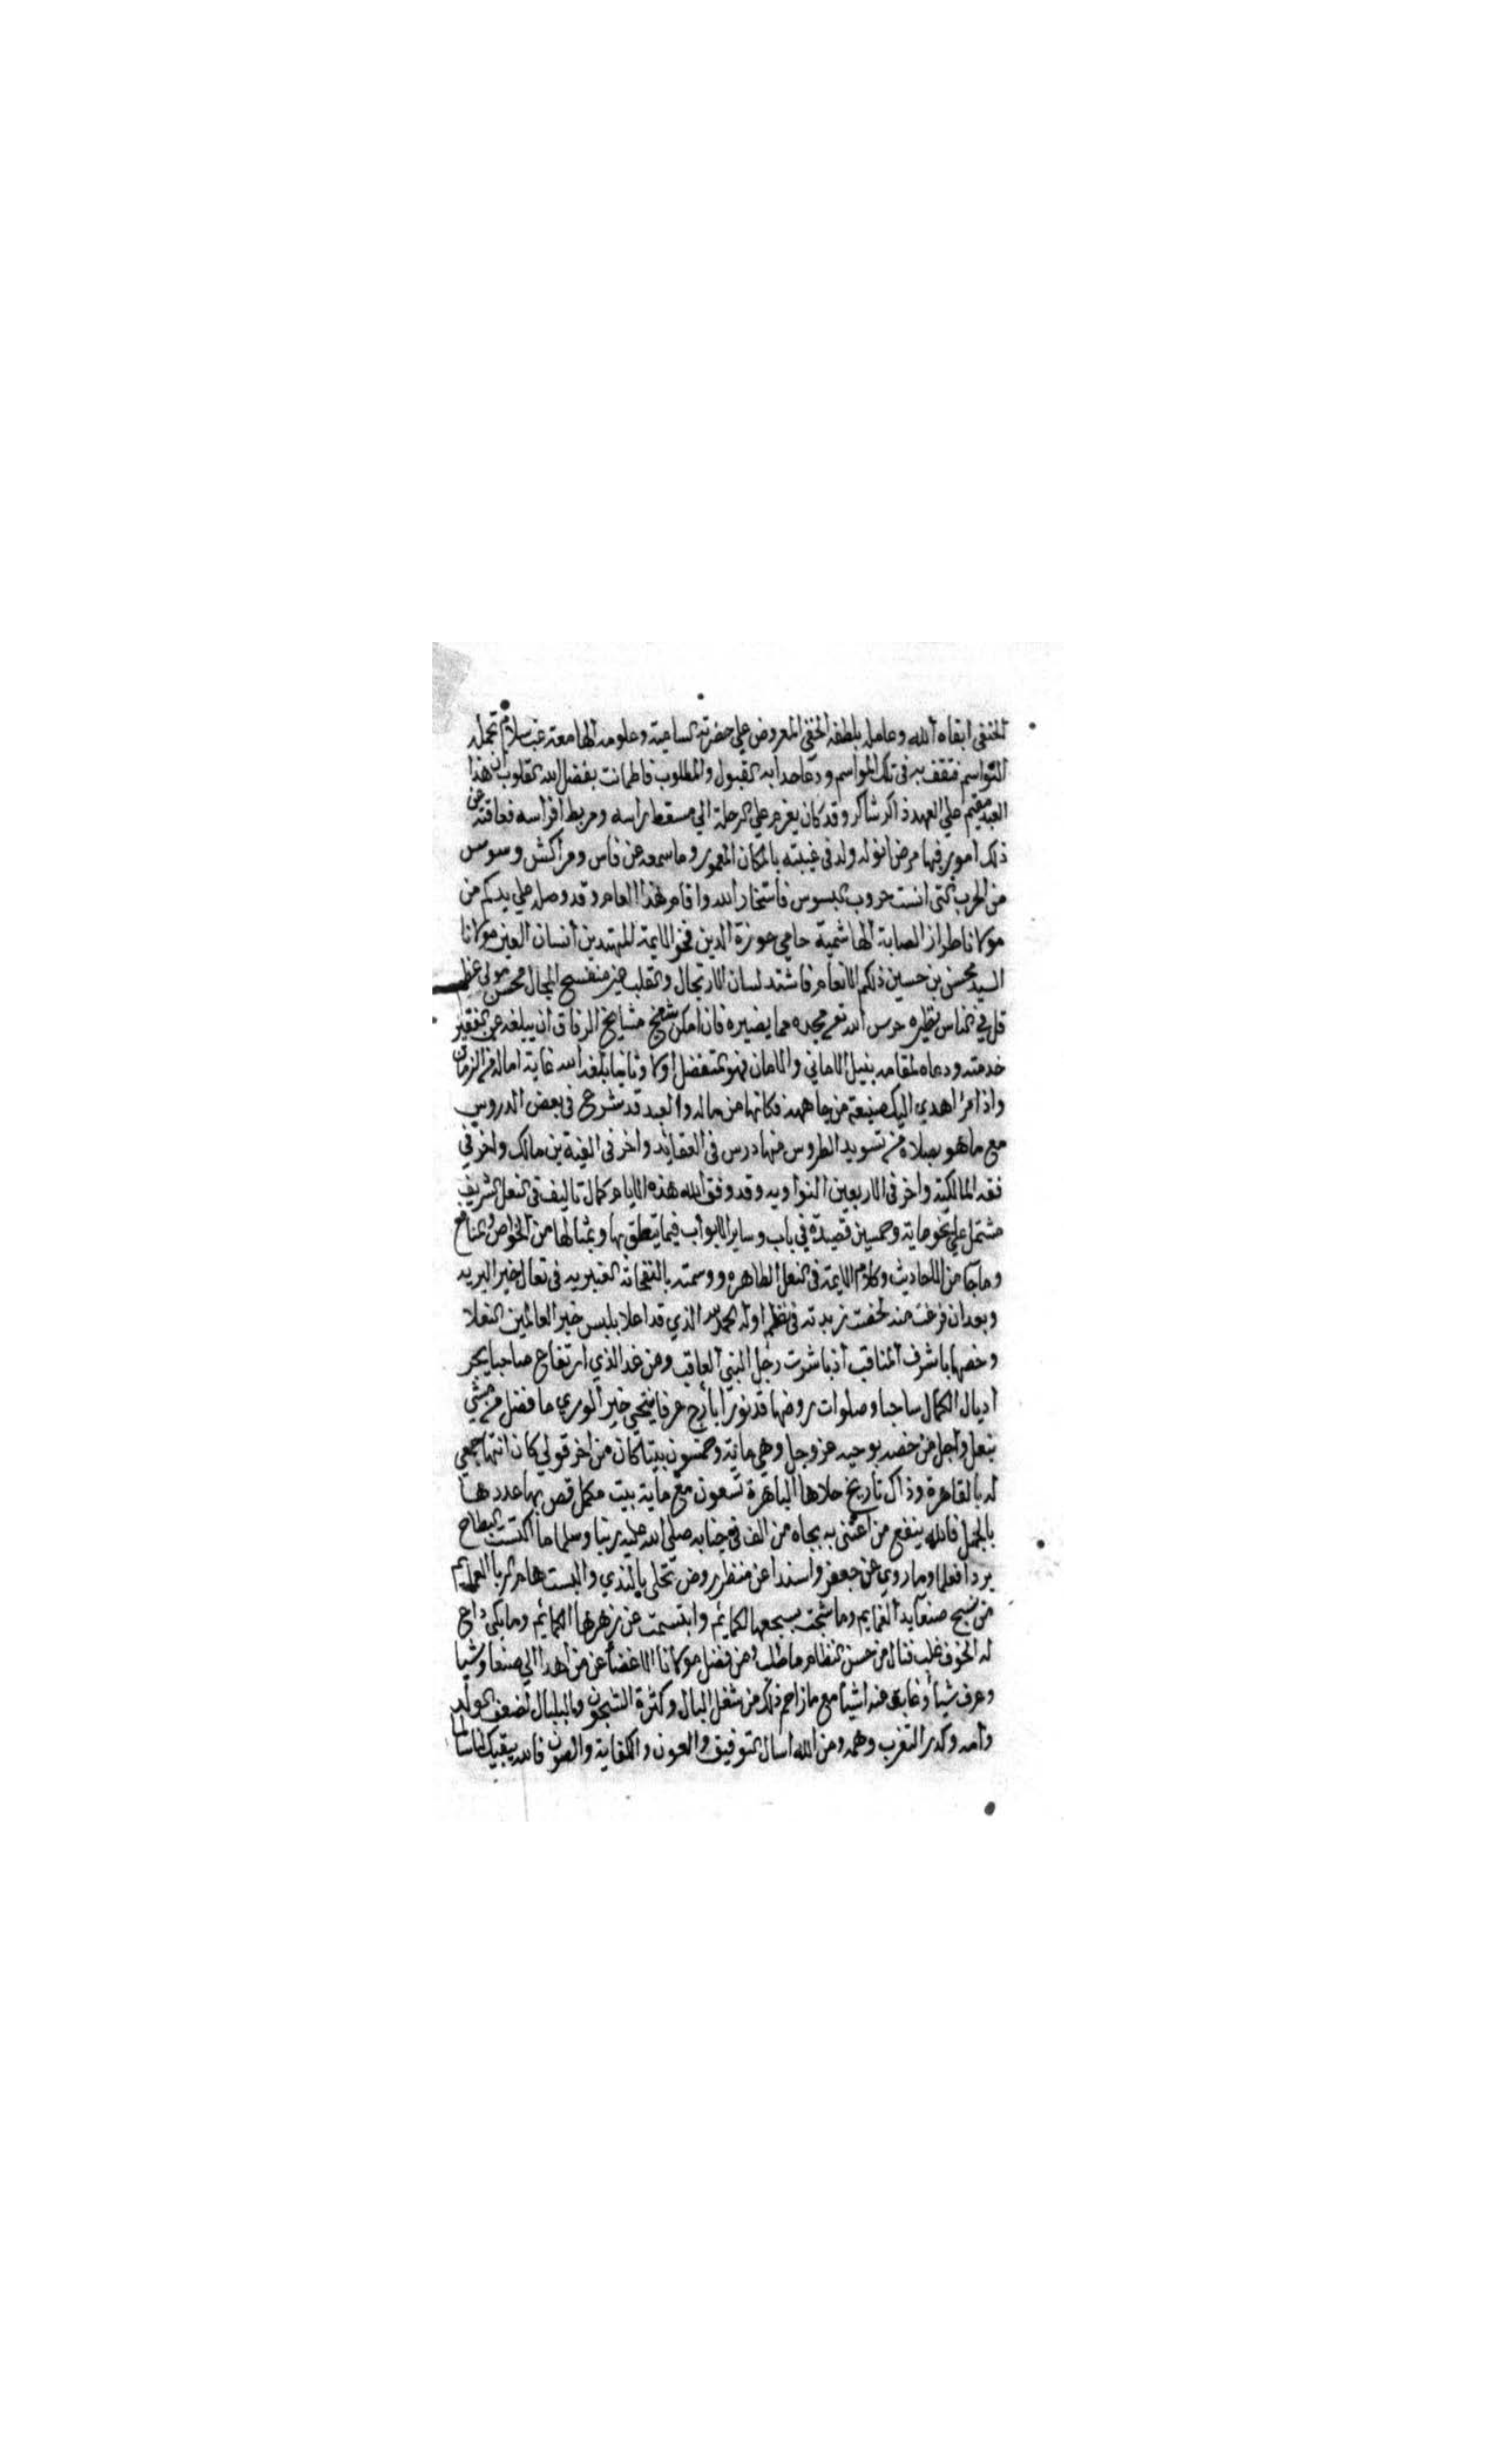 الحنفي ابقاه الله وعامله بلطفه الخفي المعروض علي حضرته السامية وعلومه الهامعة غب سلام تحمله
النواسم فتقف به في تلك المواسم ودعا حدا به القبول والمطلوب فاطمانت بفضل الله القلوب ان هذا
العبد مقيم علي العهد ذاكر شاكر وقد كان يعزم علي الرحلة الي مسقط راسه ومربط افراسه فعاقته عن
ذلك امور فيها مرض ولد ولد في غيبته بالمكان المعمور وما سمعه عن فاس ومراكش وسوس
من الحرب التي انست حروب البسوس فاستخار الله واقام لهذا العام وقد وصله علي يدكم من
مولانا طراز العصابة الهاشمية حامي حوزة الدين فخر الايمة المهتدين انسان العين مولانا
السيد محسن بن حسين ذلكم الانعام فانشد لسان الارتجال والقلب غير منفسح المجال محسن مولي عظيم
قل في الناس نظيره حرس الله تعم مجده مما يضيره فان امكن شيخ مشايخ الرفاق ان يبلغه عن الفقير
خدمته ودعاه لمقامه بنيل الاماني والامان فهو المتفضل اولا وثانيا بلغه الله غاية اماله في الزمان
واذا امرؤ اهدي اليك صنيعة من جاهه فكانها من ماله والعبد قد شرع في بعض الدروس
مع ما هو بصلاه من تسويد الطروس منها درس في العقايد واخر في الفية بن مالك واخر في
فقه المالكية واخر في الاربعين النواويه وقد وفق الله هذه الايام كمال تاليف في النعل الشريف
مشتمل علي نحو ماية وخمسين قصيدة في باب وساير الابواب فيما يتعلق بها وبمثالها من الخواص والمنافع
وما جا من الاحاديث وكلام الايمة في النعل الطاهره ووسمته بالنفحات العنبريه في نعال خير البريه
وبعد ان فرغت منه لخصت زبدته في نظم اوله الحمد لله الذي قد اعلا بلبس خير العالمين النعلا
وخصها باشرف المناقب اذ باشرت رجل النبي العاقب ومن غدا لذي ارتفاع صاحبا يجر
اذيال الكمال ساحبا وصلوات روضها قد نورا بارج عرفا ينتحي خير الوري ما فضل من مشي
بنعل واجل من خصه بوحيه عز وجل وهي ماية وخمسون بيتا كان من اخر قولي كان انتها جمعي
له بالقاهرة وذاك تاريخ حلاها الباهرة تسعون مع ماية بيت مكمل قص بها عددها
بالجمل فالله ينفع من اعتني به بجاه من الف في جنابه صلي الله عليه ربنا وسلما ما اكتست البطاح
بردا معلما وما روي عن جعفر واسندا عن منظر روض تحلي بالندي والبست هام الربا العمايم
من نسج صنعا يد الغمايم وما شجت بسجعها الحمائم وابتسمت عن زهرها الكمائم وما بكي داع
له الخوف غلب فنال من حسن الختام ما طلب ومن فضل مولانا الاغضا عن من اهدا الي صنعا وشيا
وعرف شيا وغاب عنه اشيا مع ما زاحم ذلك من شغل البال وكثرة الشجون والبلبال لضعف الولد
وامه وكدر التغرب وهمه ومن الله اسال التوفيق والعون والكفاية والصون فالله يبقيك لنا سالما